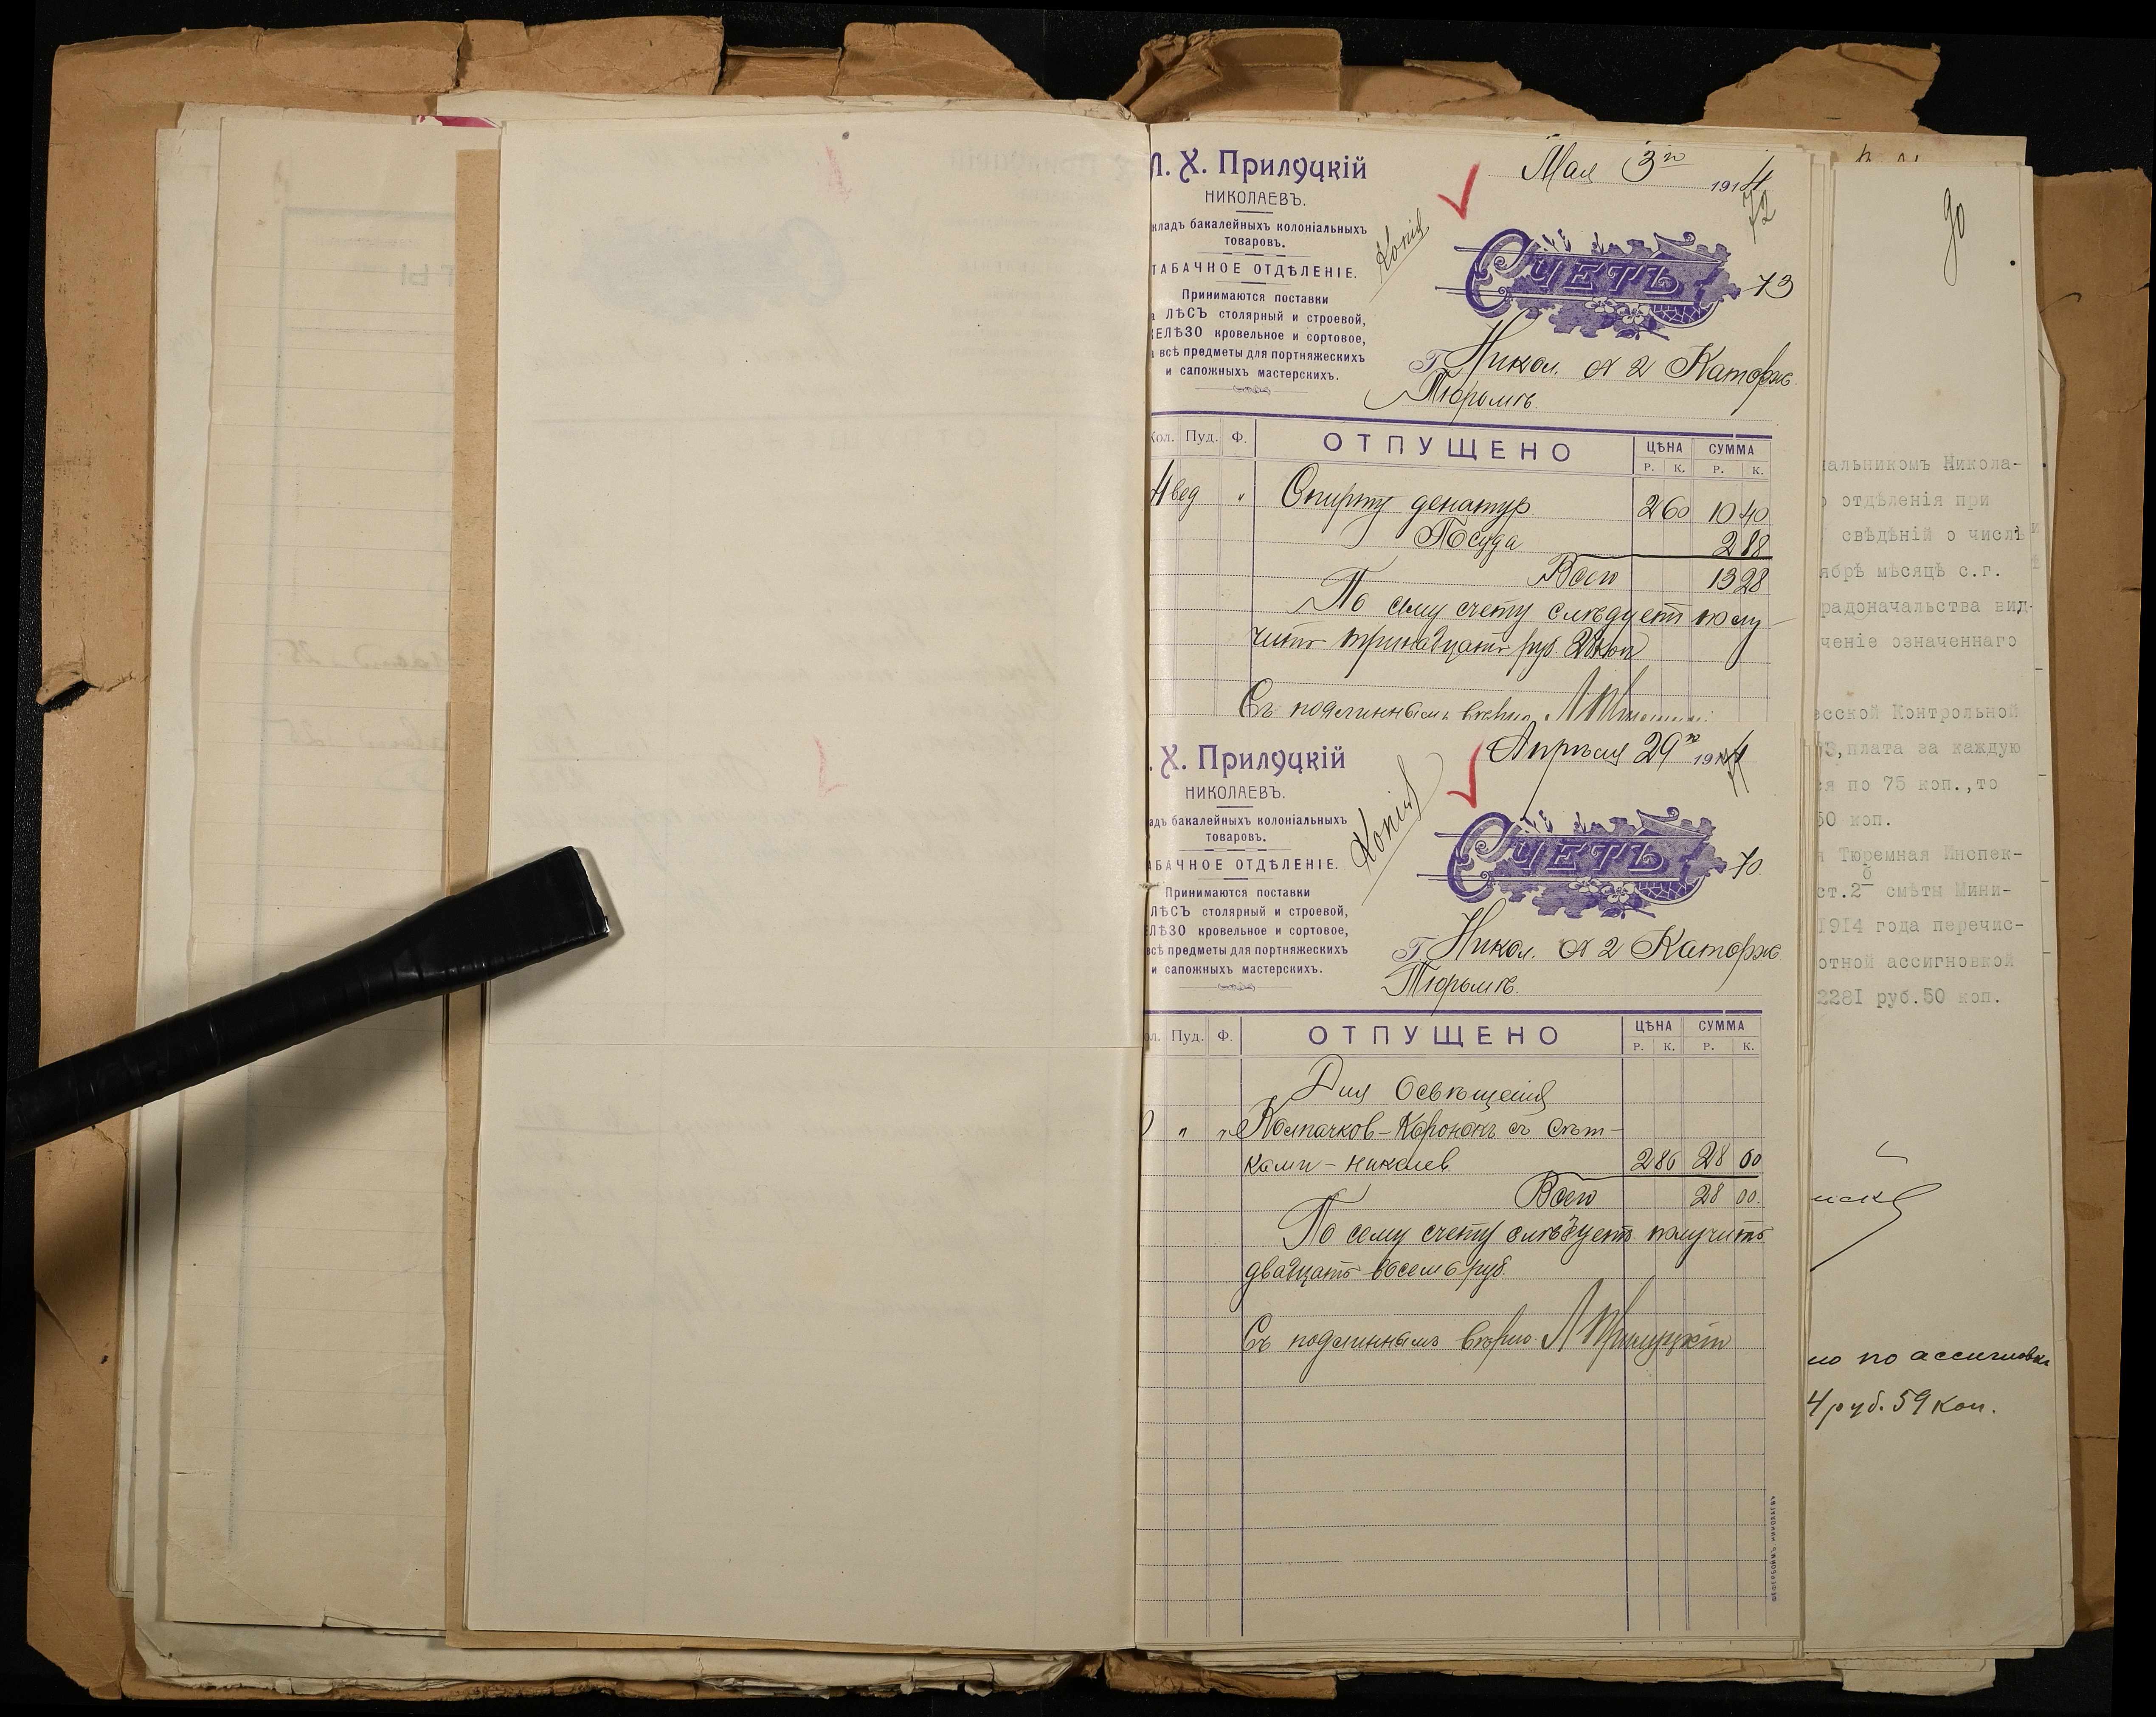 Л. Х. Прилуцкій
НИКОЛАЕВЪ.
кладъ бакалейныхъ колоніальныхъ
товаровъ.
ТАБАЧНОЕ ОТДѢЛЕНІЕ.
Принимаются поставки
ЛѢСЪ столярный и строевой,
ЕЛѢЗО кровельное и сортовое,
всѣ предметы для портняжескихъ
и сапожныхъ мастерскихъ.
Копія
Мая 3го 1914
72
СЧЕТЪ 73
Г. Никол. № 2 Каторж.
Тюрьмѣ.
Кол. Пуд. Ф. ОТПУЩЕНО ЦѢНА СУММА
Р. К. Р. К.
4 вед " Спирту денатур 2 60 10 40
Посуда 2 88
Всего 13 28
По сему счету слѣдуетъ полу-
чить тринадцать руб. 28 коп
Съ подлиннымъ вѣрно
. Х. Прилуцкій
НИКОЛАЕВЪ.
адъ бакалейныхъ колоніальныхъ
товаровъ.
АБАЧНОЕ ОТДѢЛЕНІЕ.
Принимаются поставки
ЛѢСЪ столярный и строевой,
ЕЛѢЗО кровельное и сортовое,
всѣ предметы для портняжескихъ
и сапожныхъ мастерскихъ.
Копія
Апрѣля 29го 1914
71
СЧЕТЪ 70
Г. Никол. № 2 Каторж
Тюрьмѣ.
ол. Пуд. Ф. ОТПУЩЕНО ЦѢНА СУММА
Р. К. Р. К.
Для Освѣщенія
0 " " Колпачков-Коронокъ съ сѣт-
ками - никелев 2 80 28 00
Всего 28 00
По сему счету слѣдуетъ получить
двадцать восемь руб.
Съ подлиннымъ вѣрно Л Прилуцкій
90
альникомъ Никола-
отдѣленія при
свѣдѣній о числѣ
ябрѣ мѣсяцѣ с.г.
радоначальства вид-
ченіе означеннаго
есской Контрольной
3, плата за каждую
я по 75 коп., то
50 коп.
я Тюремная Инспек-
ст.2б смѣты Мини-
1914 года перечис-
отной ассигновкой
2281 руб. 50 коп.
но по ассигновкѣ
4 руб. 59 коп.